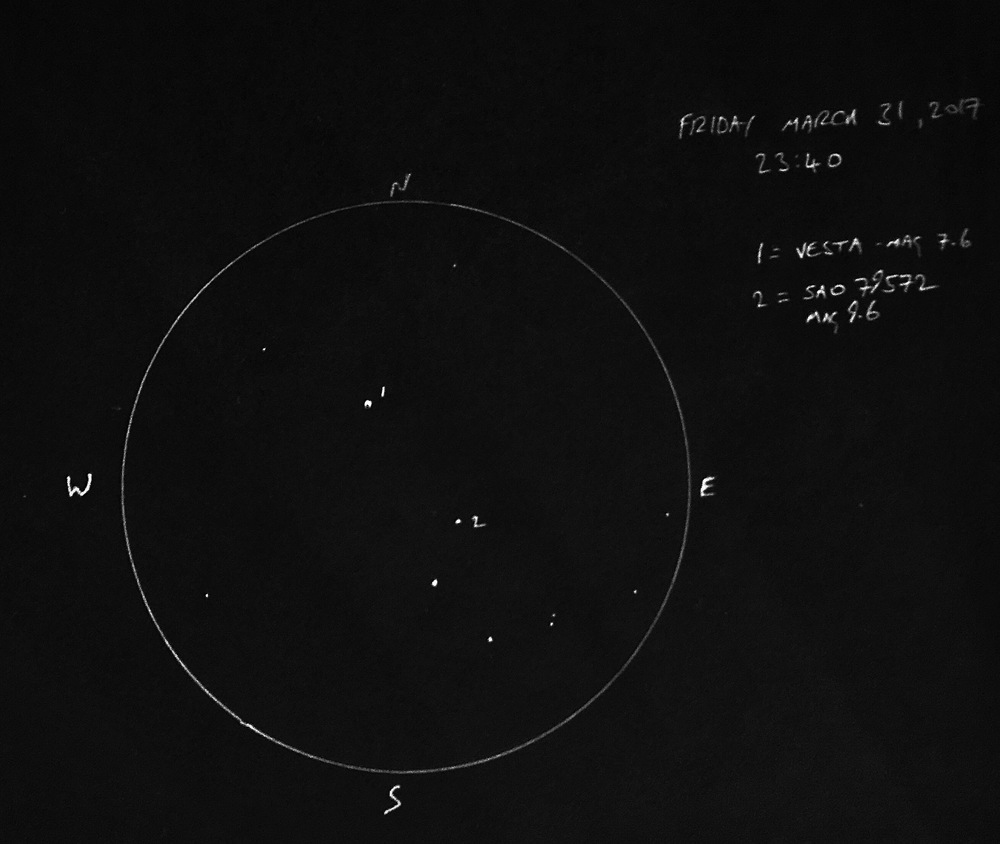 FRIDAY MARCH 31, 2017
23:40
N
1 = VESTA - MAG 7.6
2 = SAO 79572
MAG 9.6
1
W
E
2
S